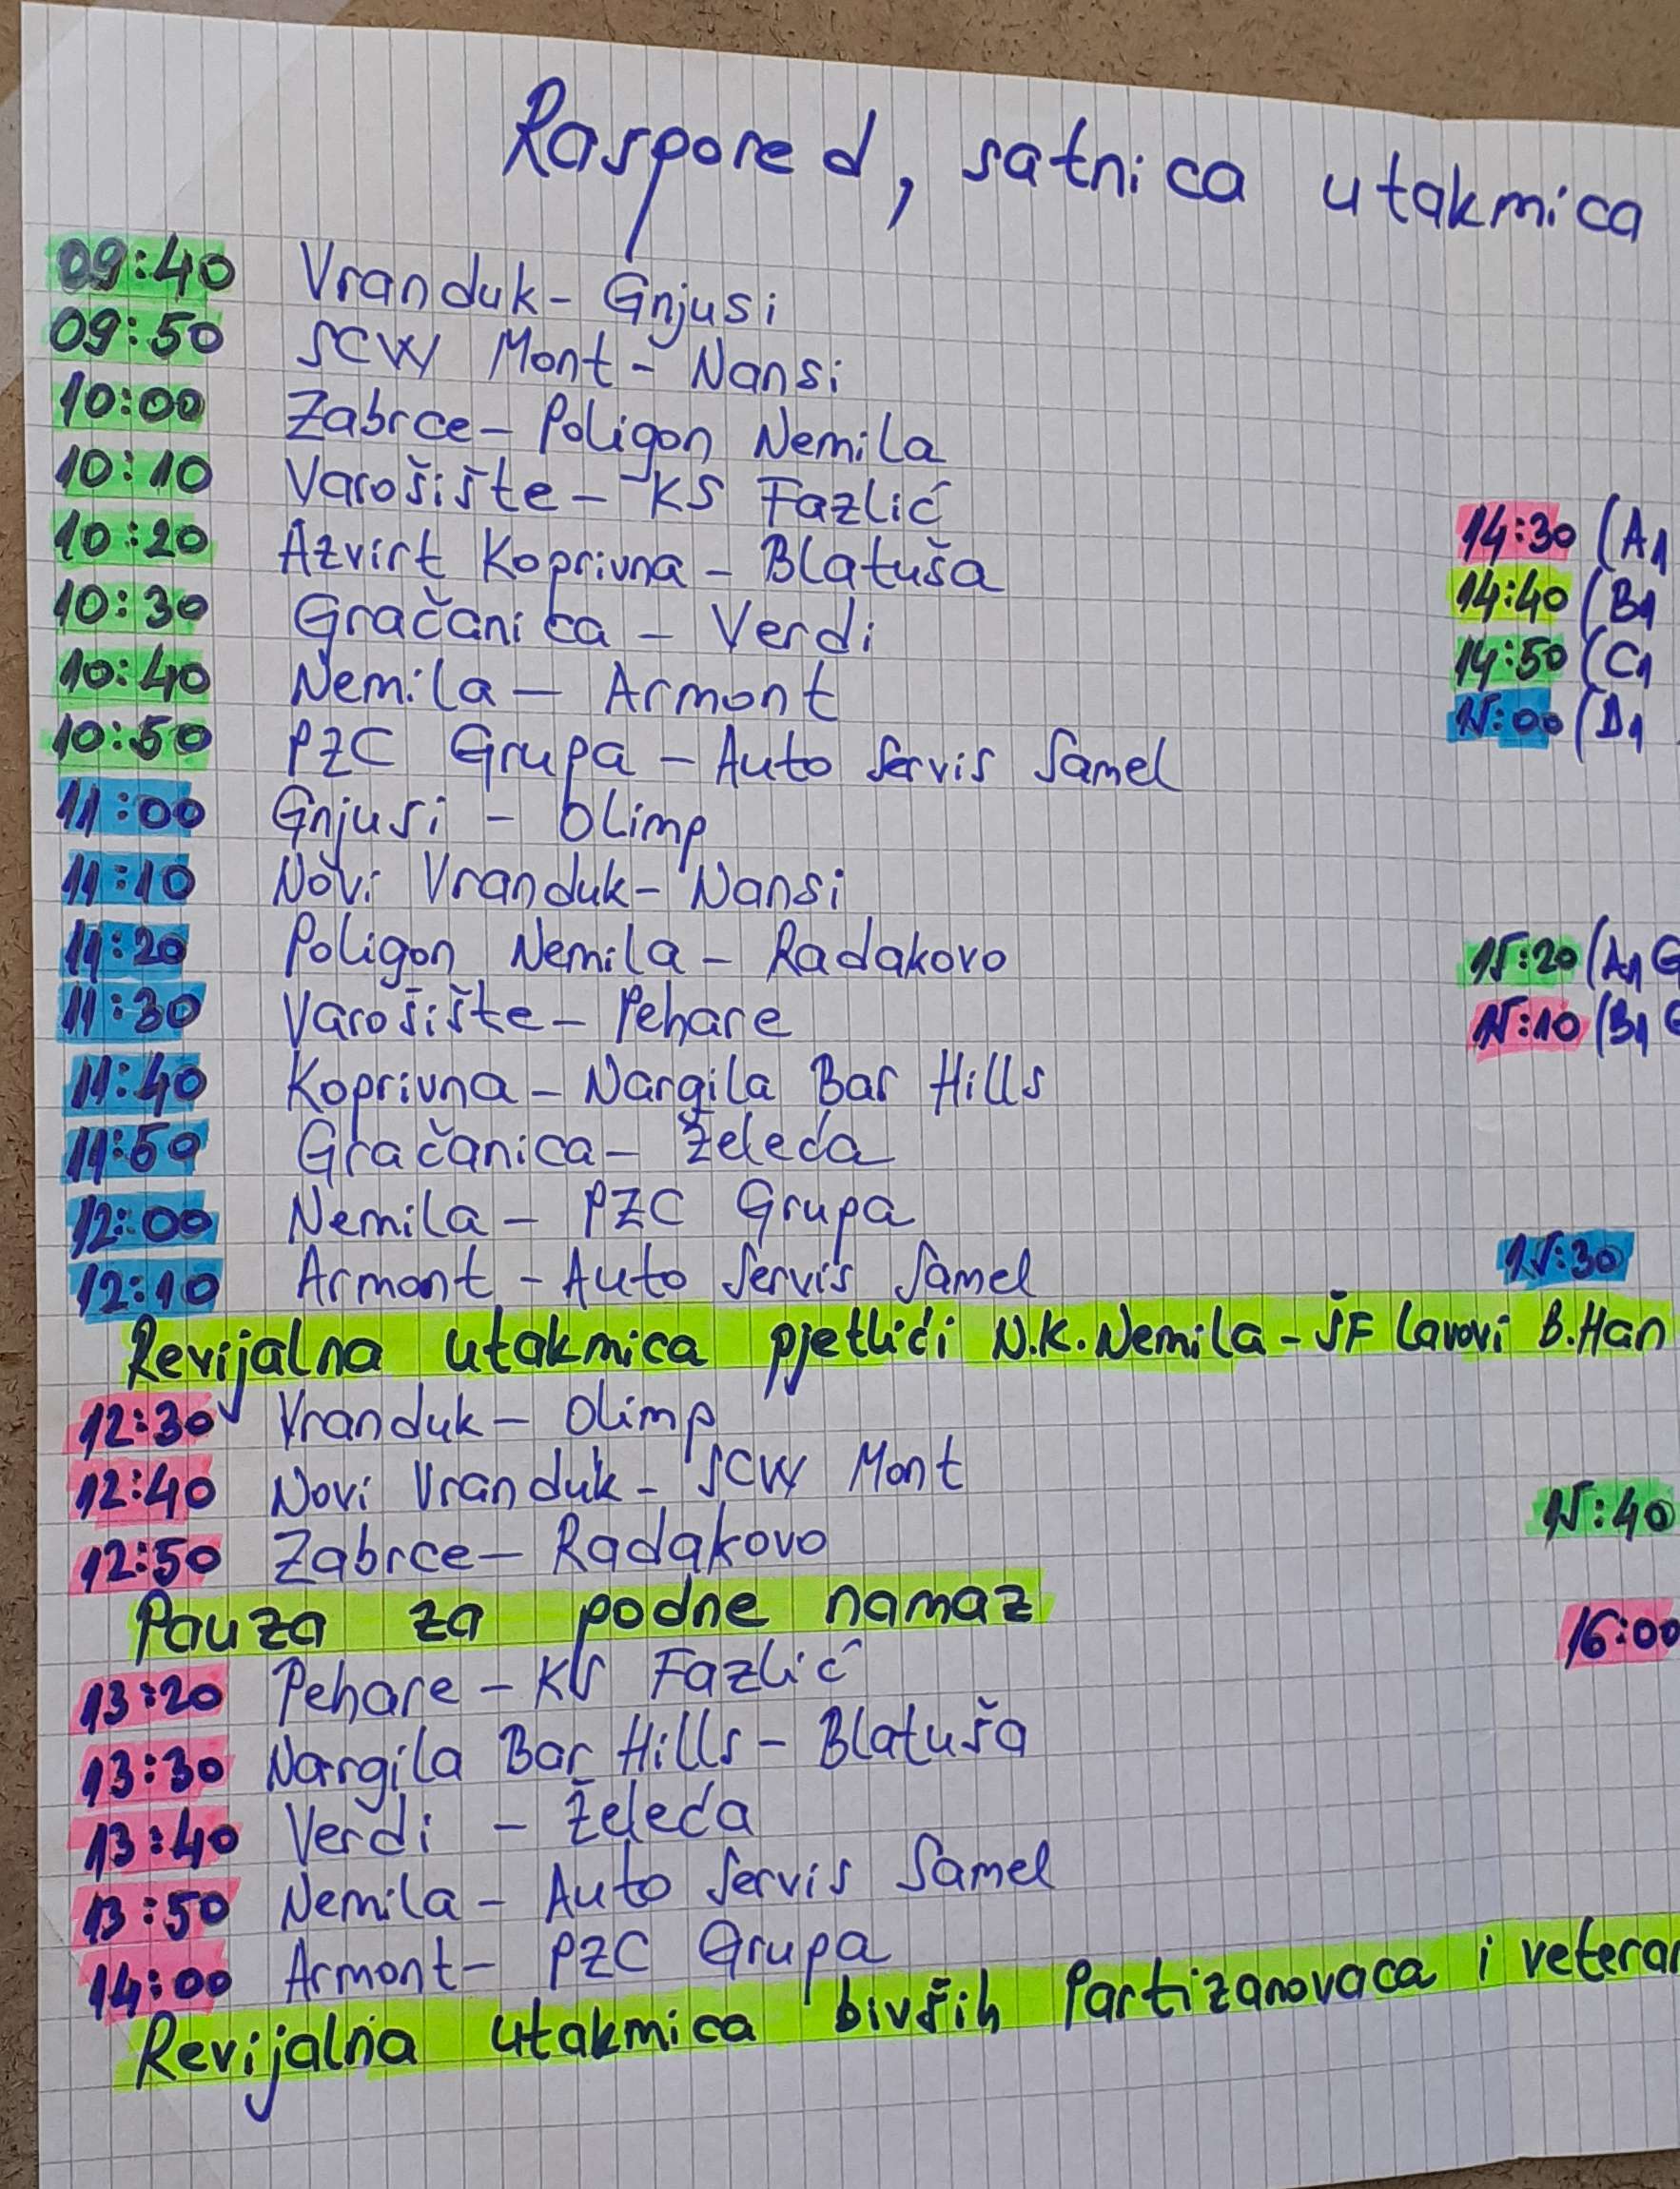 Raspored, satnica utakmica
09:40 Vranduk - Gnjusi
09:50 SCW Mont - Nansi
10:00 Zabrce - Poligon Nemila
10:10 Varošište - KS Fazlić
10:20 Azvirt Koprivna - Blatuša
10:30 Gračanica - Verdi
10:40 Nemila - Armont
10:50 PZC Grupa - Auto Servis Samel
11:00 Gnjusi - Olimp
11:10 Novi Vranduk - Nansi
11:20 Poligon Nemila - Radakovo
11:30 Varošište - Pehare
11:40 Koprivna - Nargila Bar Hills
11:50 Gračanica - Želeća
12:00 Nemila - PZC Grupa
12:10 Armont - Auto Servis Samel
Revijalna utakmica pjetlići N.K. Nemila - ŠF Lavovi B. Han
12:30 Vranduk - Olimp
12:40 Novi Vranduk - SCW Mont
12:50 Zabrce - Radakovo
Pauza za podne namaz
13:20 Pehare - KS Fazlić
13:30 Nargila Bar Hills - Blatuša
13:40 Verdi - Želeća
13:50 Nemila - Auto Servis Samel
14:00 Armont - PZC Grupa
Revijalna utakmica bivših Partizanovaca i
14:30 (A1
14:40 (B1
14:50 (C1
15:00 (D1
15:20 (A1
15:10 (B1
15:30
15:40
16:00